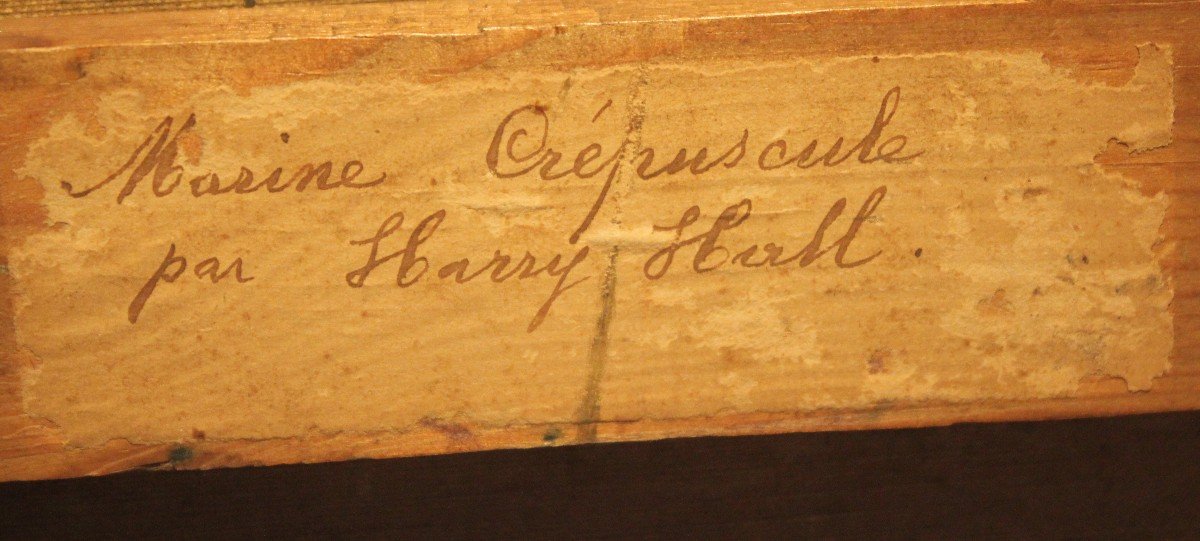 Marine Crépuscule
par Harry Hall.